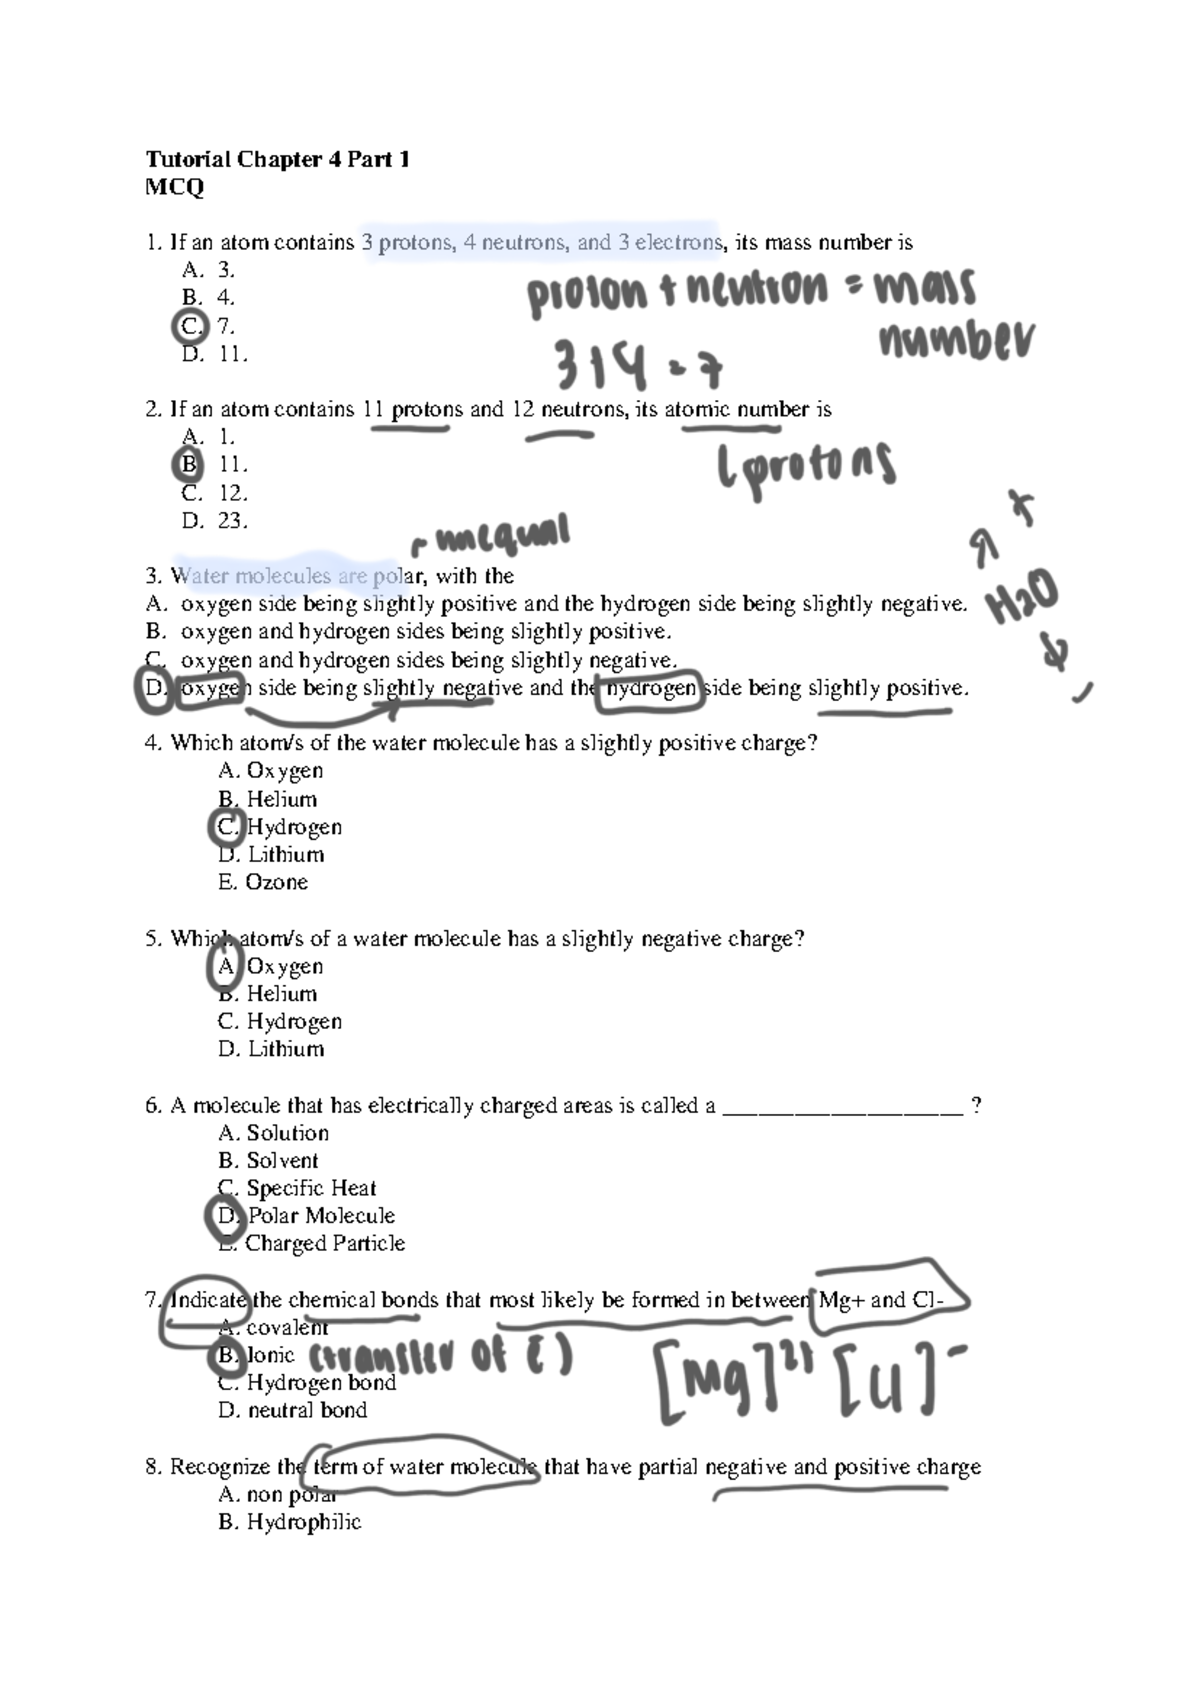 Tutorial Chapter 4 Part 1
MCQ
1. If an atom contains 3 protons, 4 neutrons, and 3 electrons, its mass number is
A. 3.
B. 4.
C. 7.
D. 11.
proton + neutron = mass
number
3+4 = 7
2. If an atom contains 11 protons and 12 neutrons, its atomic number is
A. 1.
B 11.
C. 12.
D. 23.
protons
unequal
3. Water molecules are polar, with the
A. oxygen side being slightly positive and the hydrogen side being slightly negative.
B. oxygen and hydrogen sides being slightly positive.
C. oxygen and hydrogen sides being slightly negative.
D. oxygen side being slightly negative and the hydrogen side being slightly positive.
+
H2O
-
4. Which atom/s of the water molecule has a slightly positive charge?
A. Oxygen
B. Helium
C. Hydrogen
D. Lithium
E. Ozone
5. Which atom/s of a water molecule has a slightly negative charge?
A Oxygen
B. Helium
C. Hydrogen
D. Lithium
6. A molecule that has electrically charged areas is called a ____________________ ?
A. Solution
B. Solvent
C. Specific Heat
D. Polar Molecule
E. Charged Particle
7. Indicate the chemical bonds that most likely be formed in between Mg+ and Cl-
A. covalent
B. Ionic (transfer of e)
C. Hydrogen bond
D. neutral bond
[Mg]2+ [Cl]-
8. Recognize the term of water molecule that have partial negative and positive charge
A. non polar
B. Hydrophilic